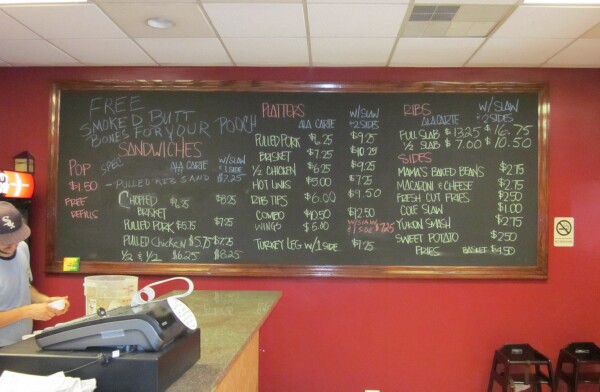 FREE
SMOKED BUTT
BONES FOR YOUR POOCH
SANDWICHES
ALA CARTE
W/SLAW
+ 1 SIDE
SPEC
- PULLED RIB SAND $7.25
CHOPPED BRISKET 6.75 8.25
PULLED PORK $5.75 7.25
PULLED CHICKEN $5.75 $7.25
1/2 & 1/2 $6.25 $8.25
POP
$1.50
FREE
REFILLS
PLATTERS
ALA CARTE
W/SLAW
+2SIDES
PULLED PORK $6.25 $9.25
BRISKET $7.25 $10.25
1/2 CHICKEN $6.25 $9.25
HOT LINKS $5.00 $7.25
RIB TIPS $6.00 $9.50
COMBO $10.50 $12.50
WINGS $5.40 W/SLAW & 1 SIDE $7.25
TURKEY LEG W/1 SIDE $7.25
RIBS
ALA CARTE
W/ SLAW
+ 2 SIDES
FULL SLAB $13.25 $16.75
1/2 SLAB $7.00 $10.50
SIDES
MAMA'S BAKED BEANS $2.75
MACARONI & CHEESE $2.75
FRESH CUT FRIES $2.50
COLE SLAW $1.00
YUKON SMASH $2.75
SWEET POTATO FRIES $2.50
BASKET $4.50